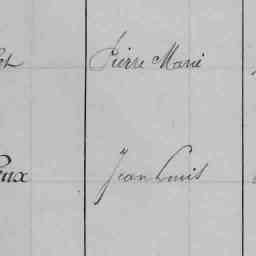 Pierre Marie
Jean Louis